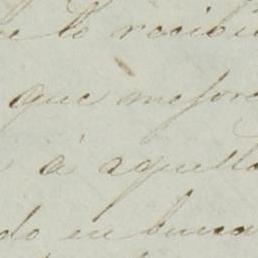 e lo recibi
que mejor
á aquella
do en buena